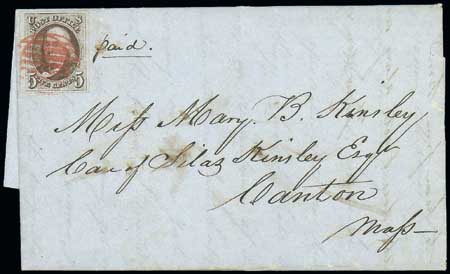 POST OFFICE
5 FIVE CENTS 5
paid.
Miſs Mary. B. Kinsley
Care of Silas Kinsley Esqr
Canton
Maſs